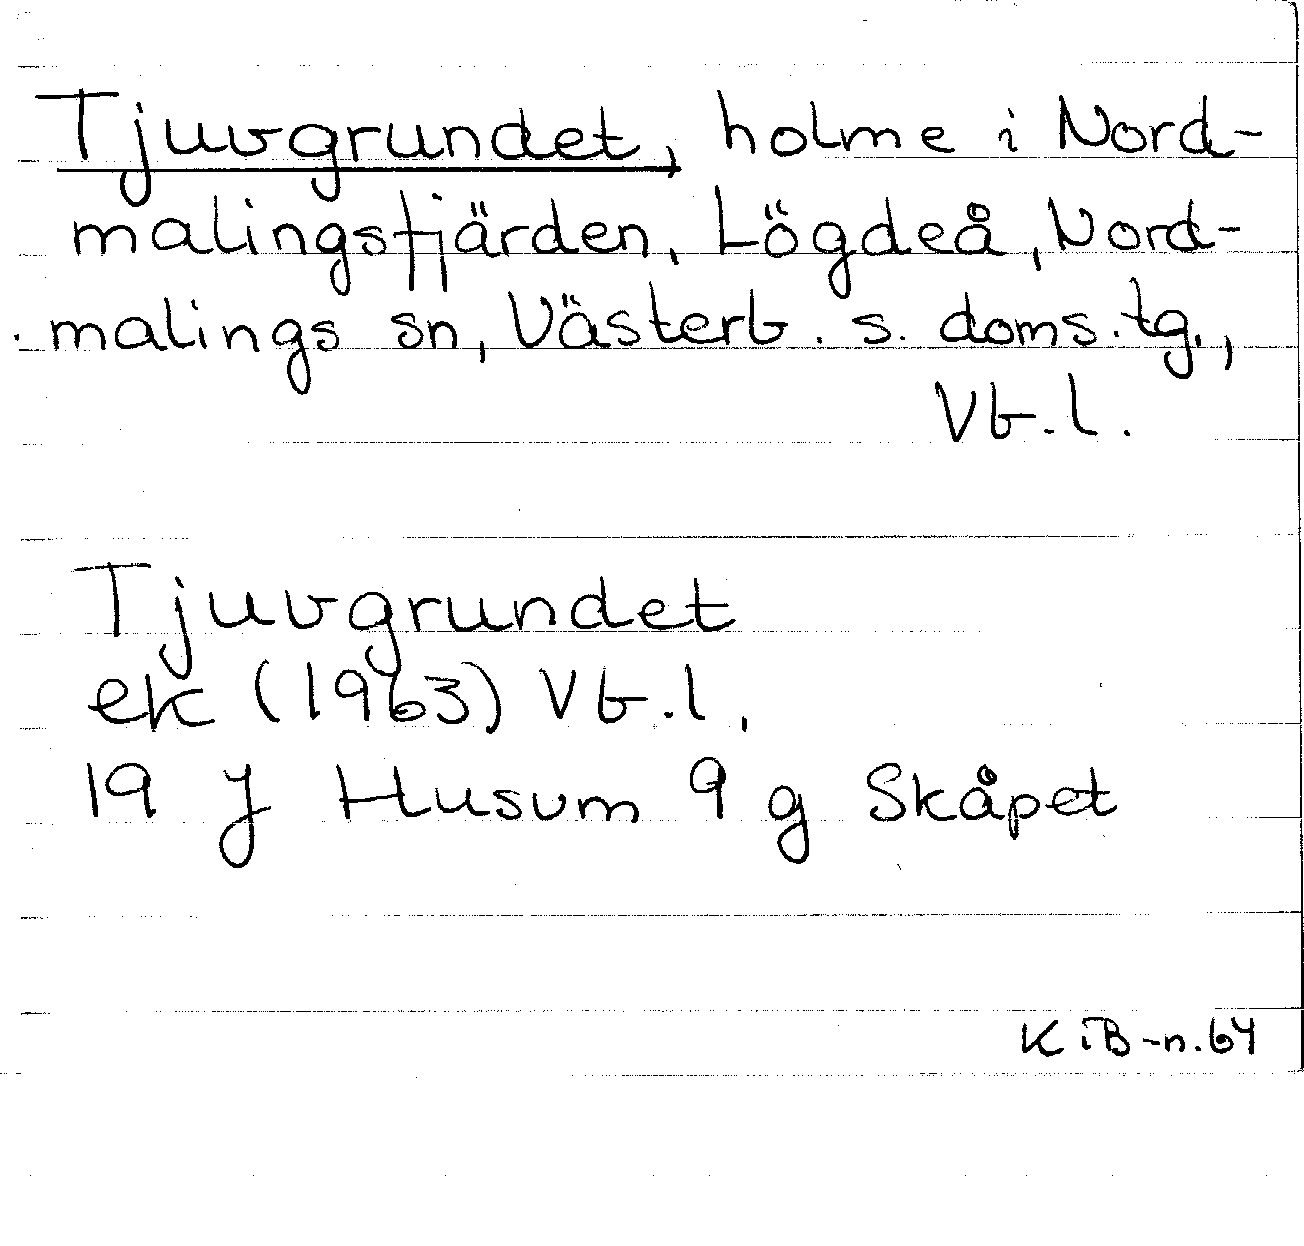 Tjuvgrundet, holme i Nord-
malingsfjärden, Lögdeå, Nord-
malings sn, Västerb. s. doms. tg.,
Vb. l.
Tjuvgrundet
ek (1963) Vb. l.
19 J Husum 9 g Skåpet
K iB-n. 64